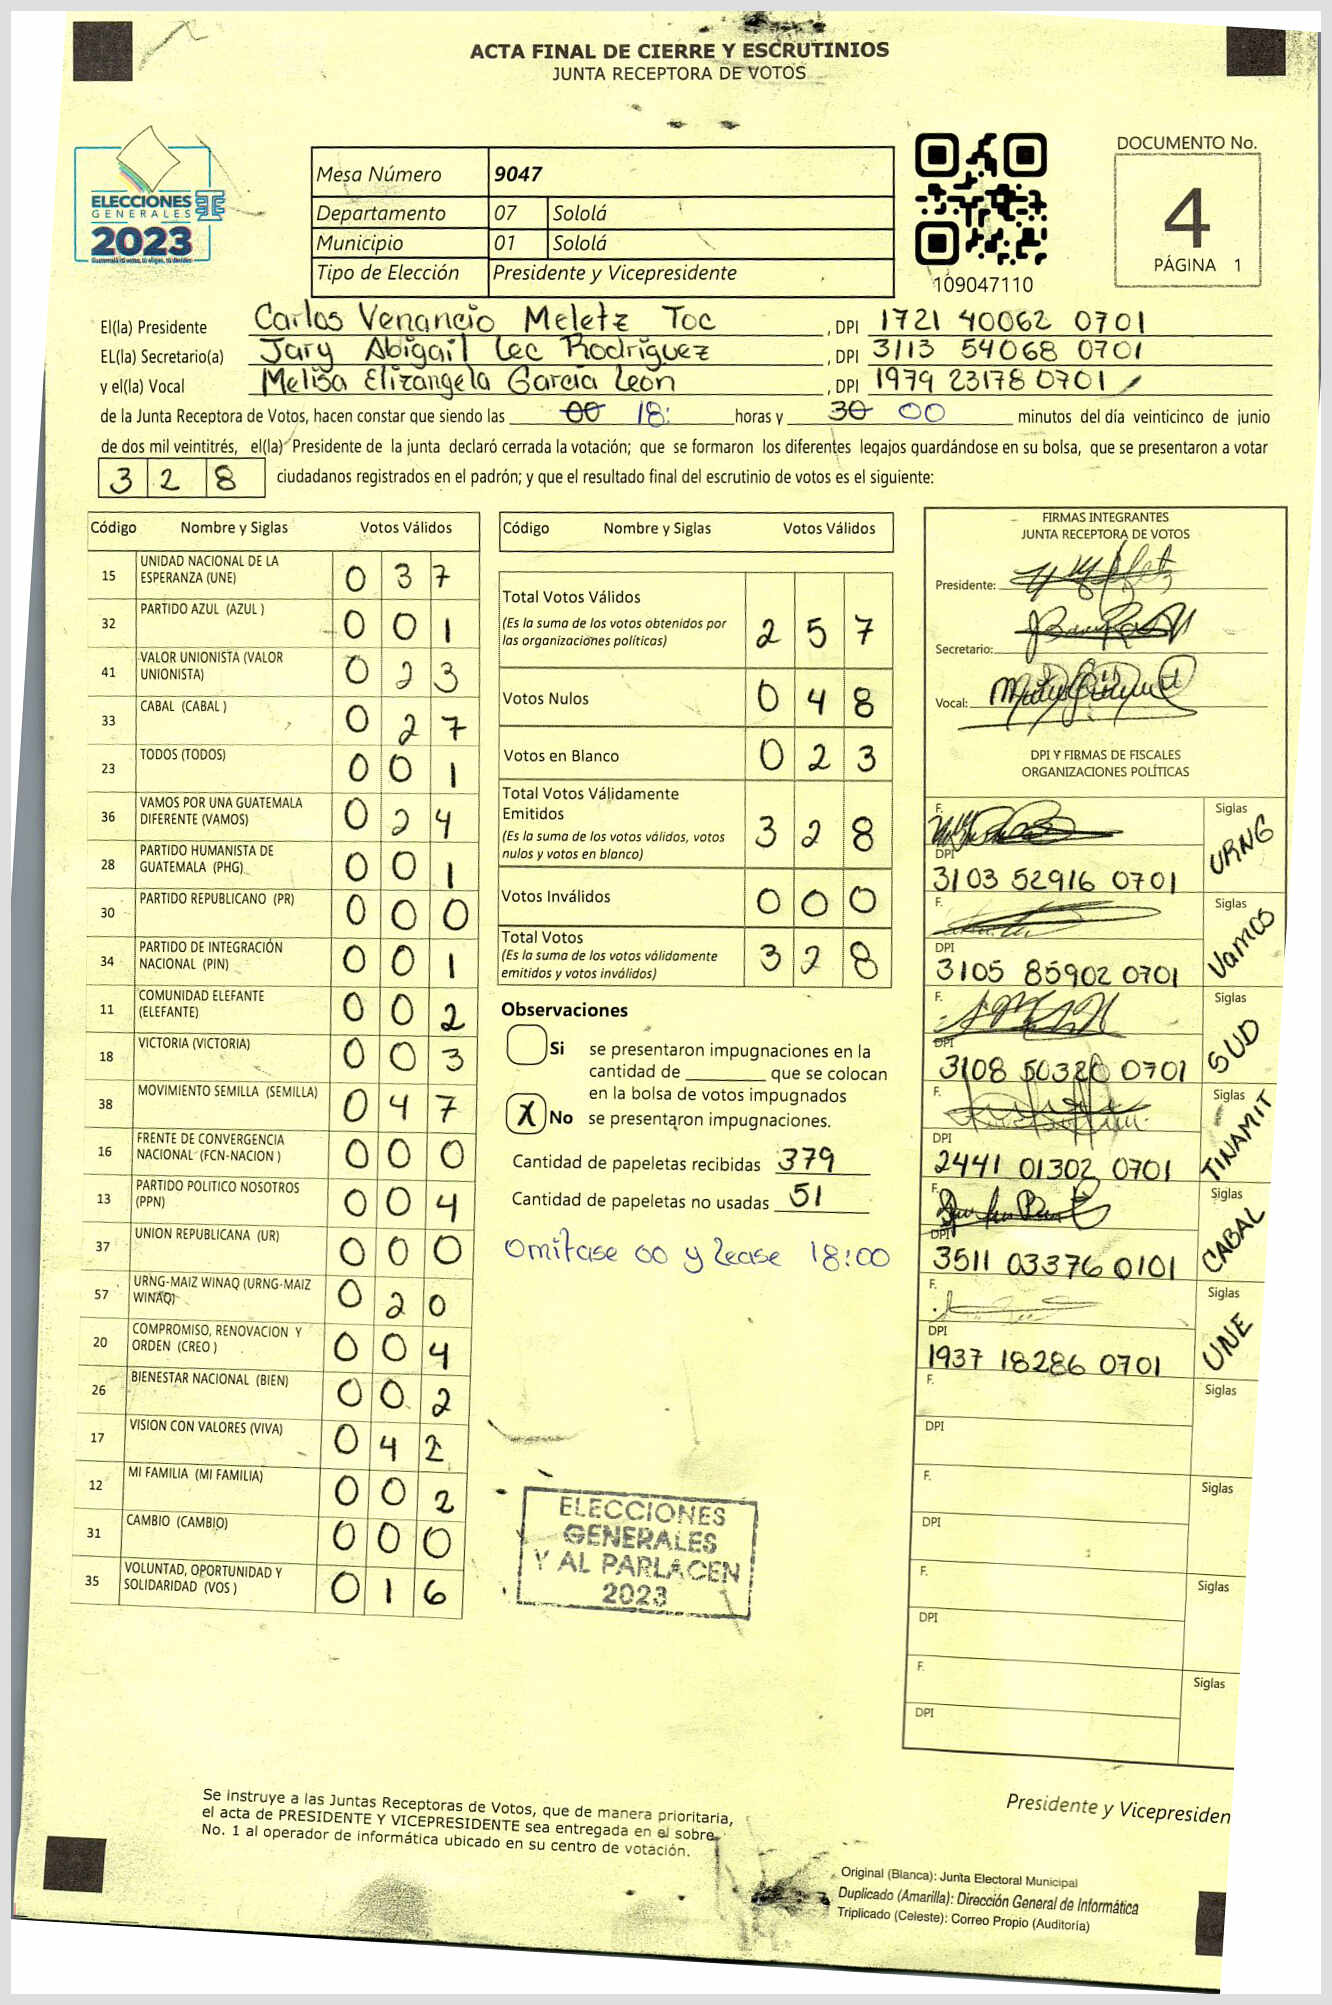 ACTA FINAL DE CIERRE Y ESCRUTINIOS
JUNTA RECEPTORA DE VOTOS
ELECCIONES
GENERALES
2023
Mesa Número 9047
Departamento 07 Sololá
Municipio 01 Sololá
Tipo de Elección Presidente y Vicepresidente
109047110
DOCUMENTO No.
4
PÁGINA 1
El(la) Presidente Carlos Venancio Meletz Toc, DPI 1721 40062 0701
EL(la) Secretario(a) Jary Abigail Lec Rodríguez, DPI 3113 54068 0701
y el(la) Vocal Melisa Elizangela García León, DPI 1979 23178 0701
de la Junta Receptora de Votos, hacen constar que siendo las 00 18: horas y 30 00 minutos del día veinticinco de junio
de dos mil veintitrés, el(la) Presidente de la junta declaró cerrada la votación; que se formaron los diferentes legajos guardándose en su bolsa, que se presentaron a votar
328 ciudadanos registrados en el padrón; y que el resultado final del escrutinio de votos es el siguiente:
Código Nombre y Siglas Votos Válidos
15 UNIDAD NACIONAL DE LA ESPERANZA (UNE) 0 3 7
32 PARTIDO AZUL (AZUL ) 0 0 1
41 VALOR UNIONISTA (VALOR UNIONISTA) 0 2 3
33 CABAL (CABAL ) 0 2 7
23 TODOS (TODOS) 0 0 1
36 VAMOS POR UNA GUATEMALA DIFERENTE (VAMOS) 0 2 4
28 PARTIDO HUMANISTA DE GUATEMALA (PHG) 0 0 1
30 PARTIDO REPUBLICANO (PR) 0 0 0
34 PARTIDO DE INTEGRACIÓN NACIONAL (PIN) 0 0 1
11 COMUNIDAD ELEFANTE (ELEFANTE) 0 0 2
18 VICTORIA (VICTORIA) 0 0 3
38 MOVIMIENTO SEMILLA (SEMILLA) 0 4 7
16 FRENTE DE CONVERGENCIA NACIONAL (FCN-NACION ) 0 0 0
13 PARTIDO POLITICO NOSOTROS (PPN) 0 0 4
37 UNION REPUBLICANA (UR) 0 0 0
57 URNG-MAIZ WINAQ (URNG-MAIZ WINAQ) 0 2 0
20 COMPROMISO, RENOVACION Y ORDEN (CREO ) 0 0 4
26 BIENESTAR NACIONAL (BIEN) 0 0 2
17 VISION CON VALORES (VIVA) 0 4 2
12 MI FAMILIA (MI FAMILIA) 0 0 2
31 CAMBIO (CAMBIO) 0 0 0
35 VOLUNTAD, OPORTUNIDAD Y SOLIDARIDAD (VOS ) 0 1 6
Código Nombre y Siglas Votos Válidos
Total Votos Válidos 2 5 7
(Es la suma de los votos obtenidos por
las organizaciones políticas)
Votos Nulos 0 4 8
Votos en Blanco 0 2 3
Total Votos Válidamente
Emitidos 3 2 8
(Es la suma de los votos válidos, votos
nulos y votos en blanco)
Votos Inválidos 0 0 0
Total Votos 3 2 8
(Es la suma de los votos válidamente
emitidos y votos inválidos)
Observaciones
Si se presentaron impugnaciones en la
cantidad de ________ que se colocan
en la bolsa de votos impugnados
X No se presentaron impugnaciones.
Cantidad de papeletas recibidas 379
Cantidad de papeletas no usadas 51
Omitase 00 y lease 18:00
ELECCIONES
GENERALES
Y AL PARLACEN
2023
FIRMAS INTEGRANTES
JUNTA RECEPTORA DE VOTOS
Presidente:
Secretario:
Vocal:
DPI Y FIRMAS DE FISCALES
ORGANIZACIONES POLÍTICAS
F. Siglas URNG
DPI 3103 52916 0701
F. Siglas Vamos
DPI 3105 85902 0701
F. Siglas SUD
DPI 3108 50320 0701
F. Siglas TINAMIT
DPI 2441 01302 0701
F. Siglas CABAL
DPI 3511 03376 0101
F. Siglas UNE
DPI 1937 18286 0701
F. Siglas
DPI
F. Siglas
DPI
F. Siglas
DPI
F. Siglas
DPI
Se instruye a las Juntas Receptoras de Votos, que de manera prioritaria,
el acta de PRESIDENTE Y VICEPRESIDENTE sea entregada en el sobre
No. 1 al operador de informática ubicado en su centro de votación.
Presidente y Vicepresiden
Original (Blanca): Junta Electoral Municipal
Duplicado (Amarilla): Dirección General de Informática
Triplicado (Celeste): Correo Propio (Auditoría)